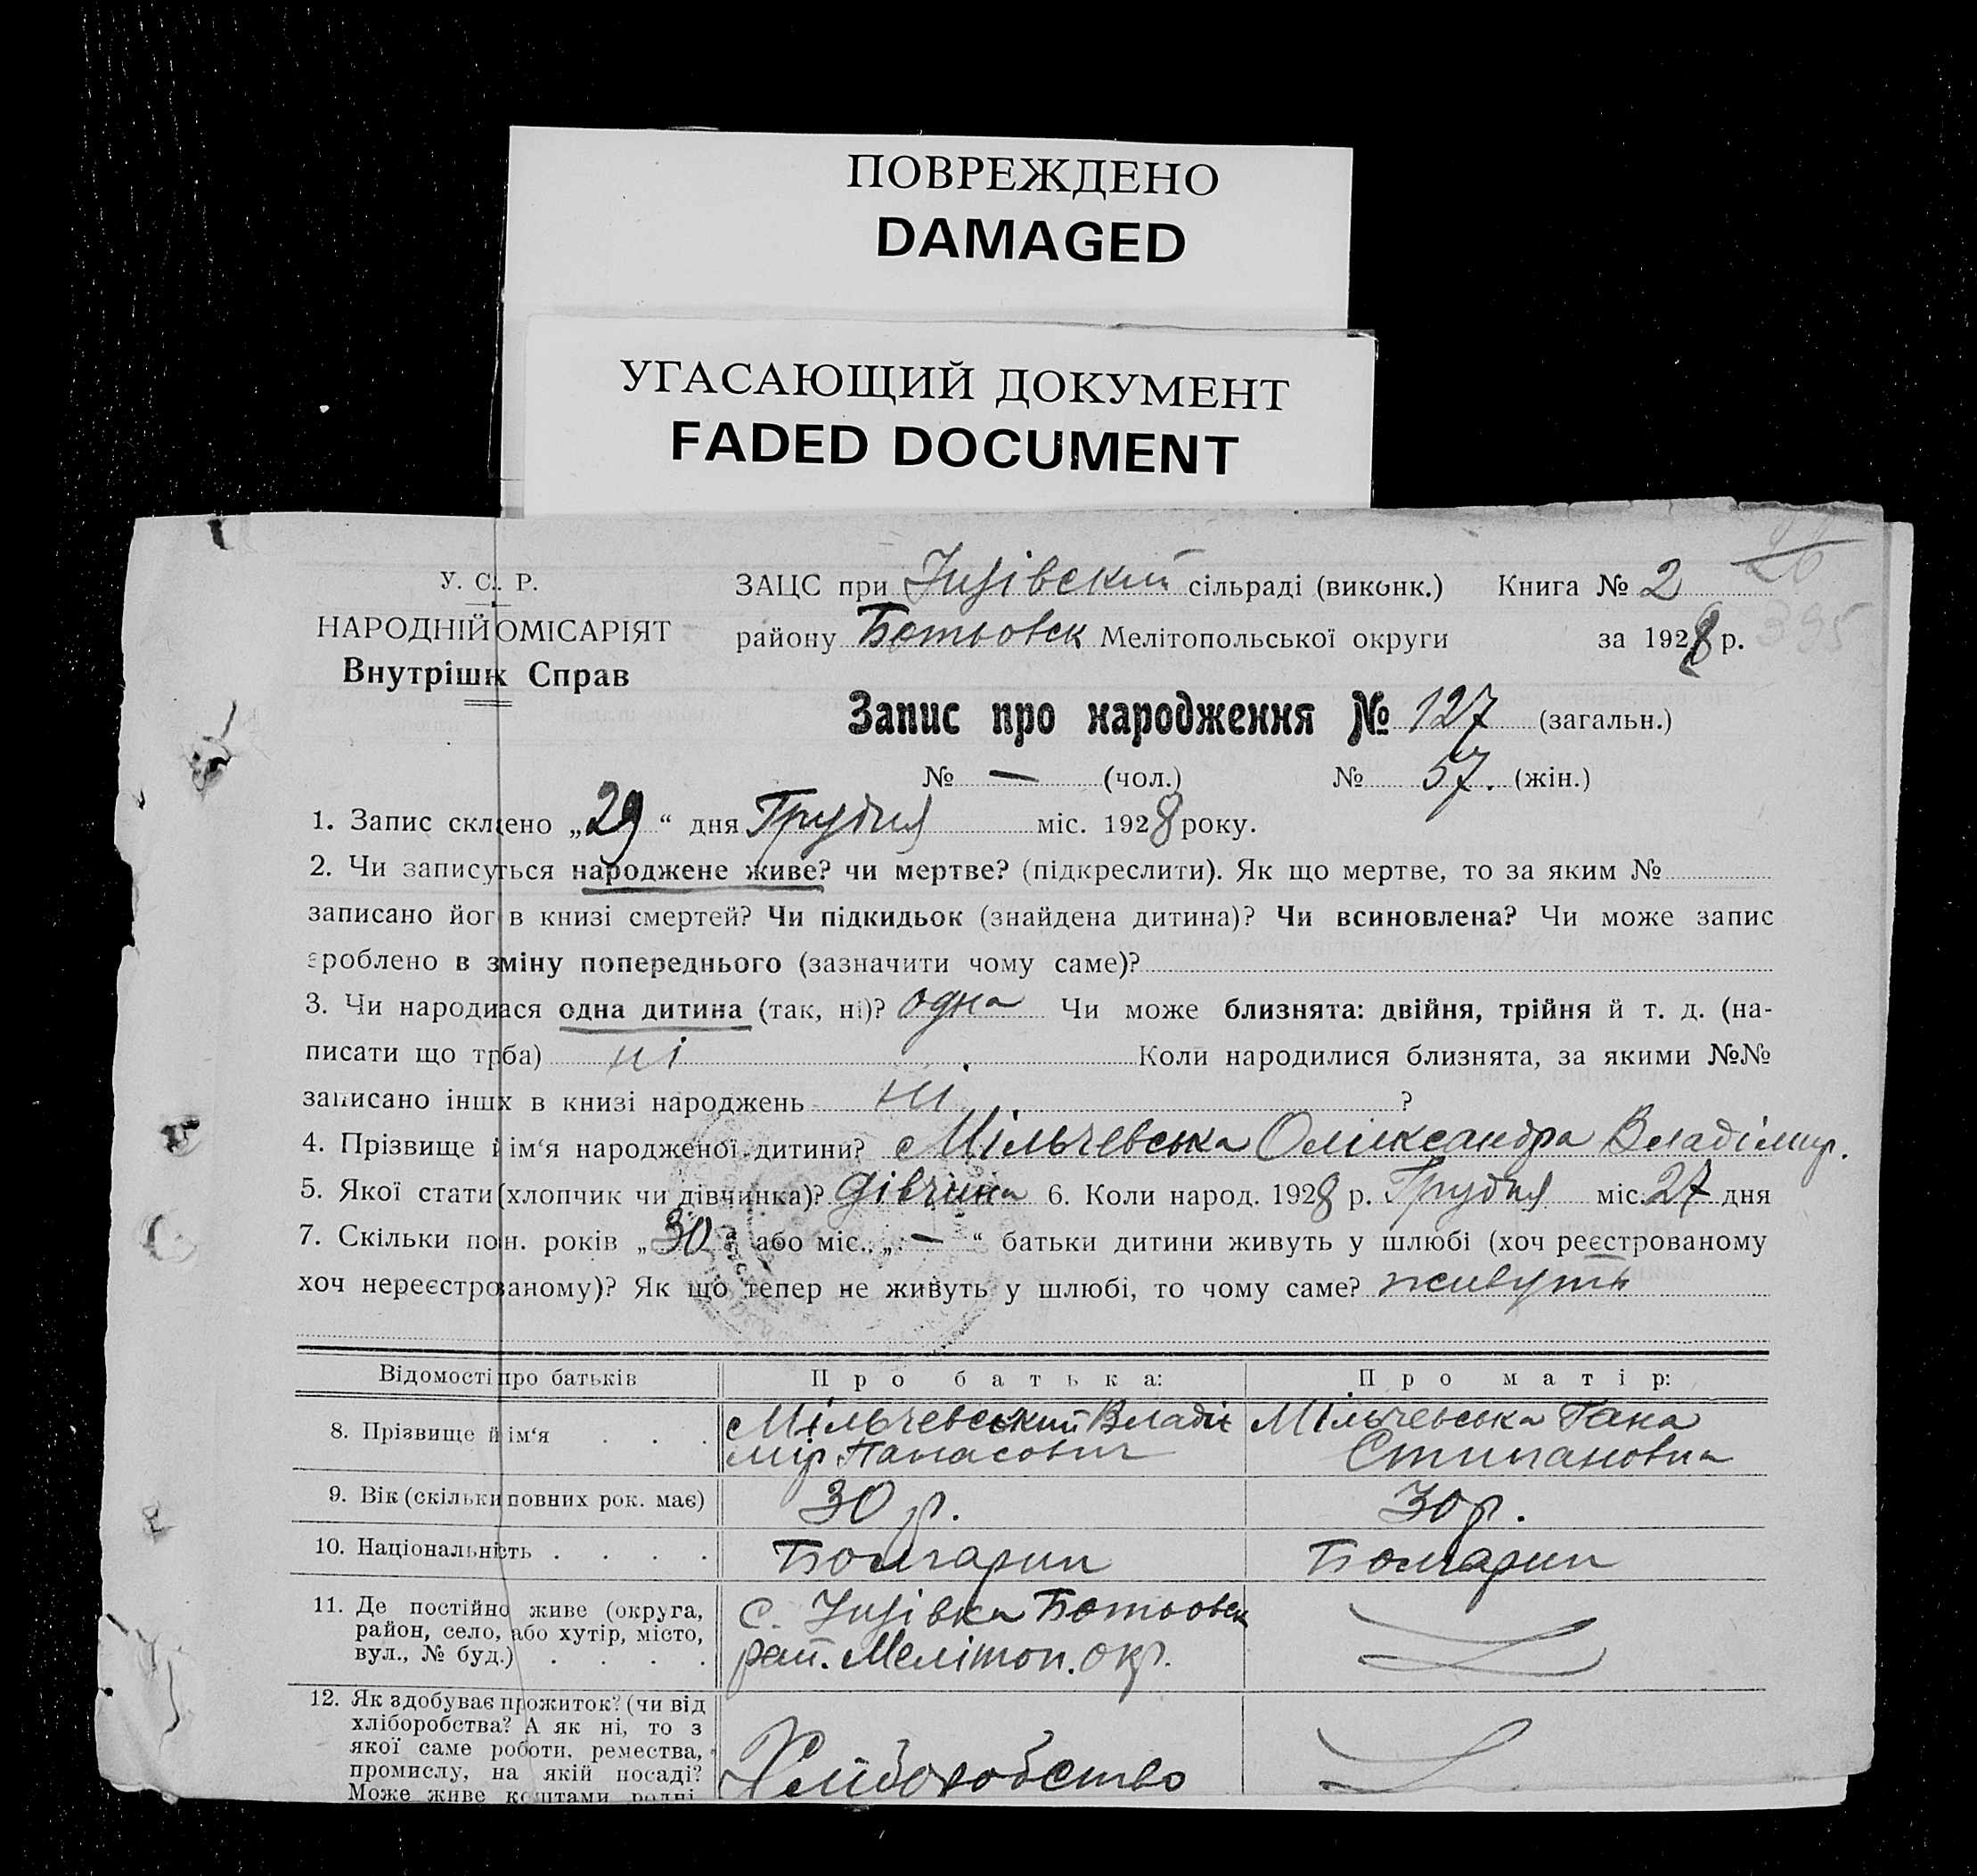 ПОВРЕЖДЕНО
DAMAGED
УГАСАЮЩИЙ ДОКУМЕНТ
FADED DOCUMENT
У. С. Р.
НАРОДНІЙ ОМІСАРІЯТ
Внутрішн Справ
ЗАЦС при Інзівский сільраді (виконк.) Книга № 2
26
району Ботьовск Мелітопольської округи за 1928 р.
395
Запис про народження № 127 (загальн.)
№ — (чол.) № 57. (жін.)
1. Запис склено „29“ дня Грудня міс. 1928 року.
2. Чи записуться народжене живе? чи мертве? (підкреслити). Як що мертве, то за яким №
записано йог в книзі смертей? Чи підкидьок (знайдена дитина)? Чи всиновлена? Чи може запис
зроблено в зміну попереднього (зазначити чому саме)?
3. Чи народиася одна дитина (так, ні)? одна Чи може близнята: двійня, трійня й т. д. (на-
писати що трба) ні Коли народилися близнята, за якими №№
записано інших в книзі народжень ні ?
4. Прізвище й ім‘я народженої дитини? Мільчевська Олікксандра Владімир.
5. Якої стати (хлопчик чи дівчинка)? дівчина 6. Коли народ. 1928 р. Грудня міс. 27 дня
7. Скільки повн. років „30“ або міс. „—“ батьки дитини живуть у шлюбі (хоч реєстрованому
хоч нереєстрованому)? Як що тепер не живуть у шлюбі, то чому саме? живуть
Відомості про батьків Про батька: Про матір:
8. Прізвище й ім‘я . . . Мільчевський Владі Мільчевська Гана
мір Панасович Стипановна
9. Вік (скільки повних рок. має) 30 р. 30 р.
10. Національність . . . . Болгарин Болгарин
11. Де постійно живе (округа, район, село, або хутір, місто, вул., № буд.) . . . .
с. Інзівка Ботьовск
рай. Мелітоп. окр.
12. Як здобуває прожиток? (чи від
хліборобства? А як ні, то з
якої саме роботи, ремества,
промислу, на якій посаді?
Може живе коштами родні
Хліборобство